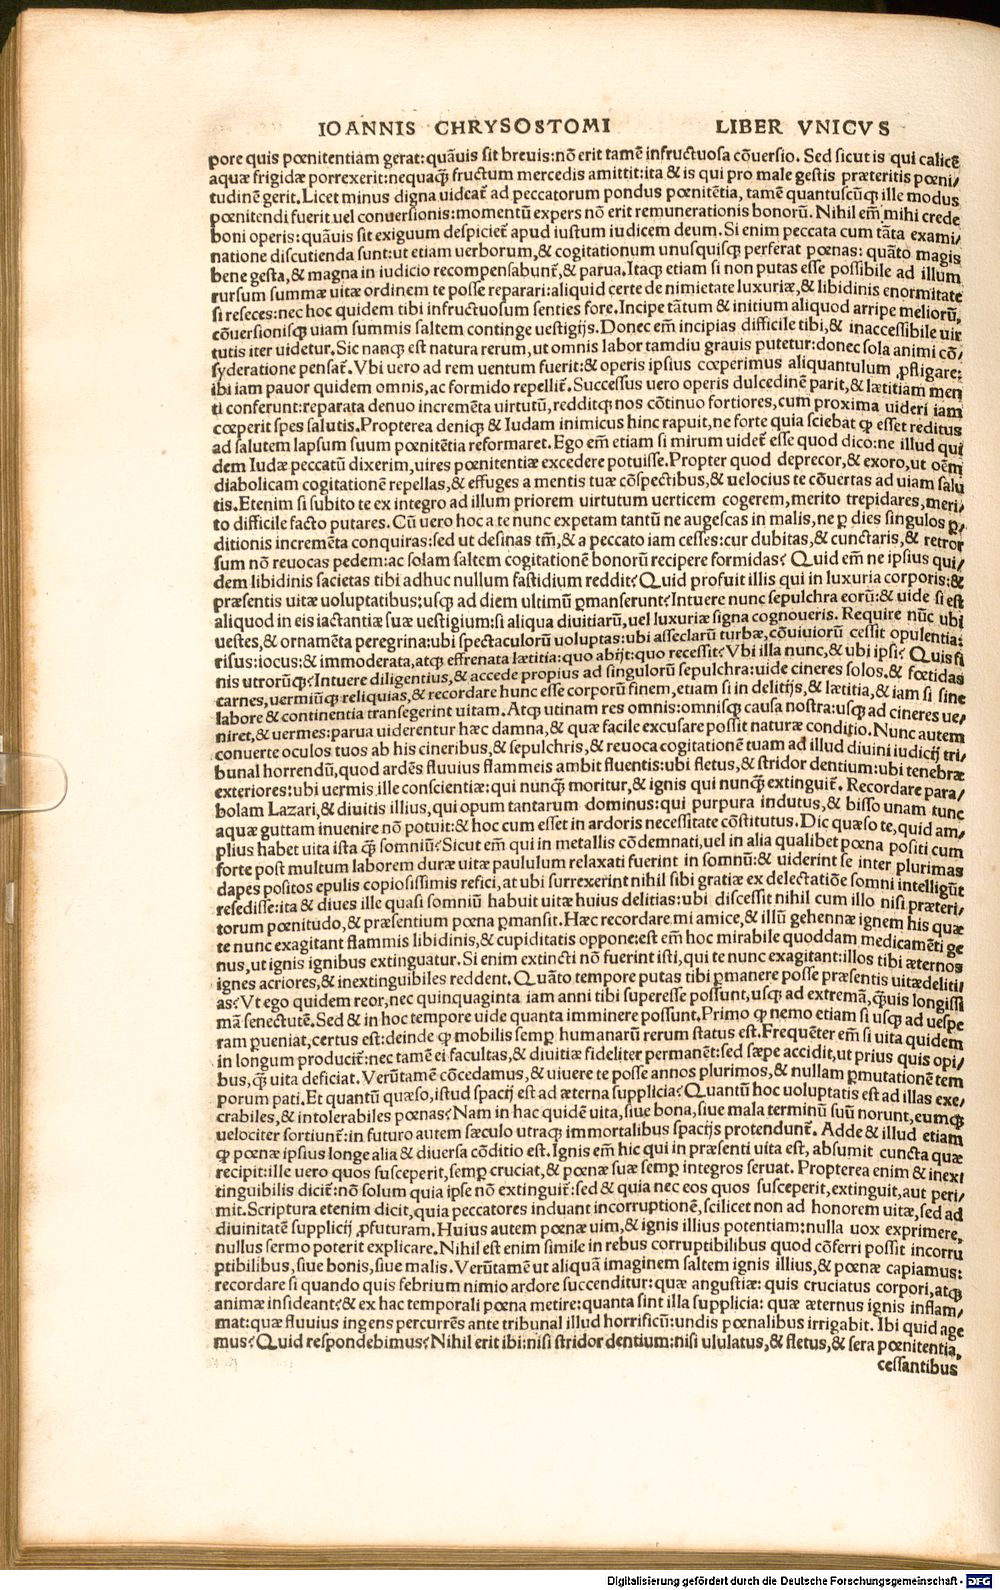 IOANNIS CHRYSOSTOMI LIBER VNICVS
pore quis pœnitentiam gerat: quãuis sit breuis: nõ erit tamẽ infructuosa cõuersio. Sed sicut is qui calicẽ
aquæ frigidæ porrexerit: nequaq̃ fructum mercedis amittit: ita & is qui pro male gestis præteritis pœni/
tudinẽ gerit. Licet minus digna uideat̃ ad peccatorum pondus pœnitẽtia, tamẽ quantuscũq; ille modus
pœnitendi fuerit uel conuersionis: momentũ expers nõ erit remunerationis bonorũ. Nihil em̃ mihi crede
boni operis: quãuis sit exiguum despiciet̃ apud iustum iudicem deum. Si enim peccata cum tãta exami/
natione discutienda sunt: ut etiam uerborum, & cogitationum unusquisq; perferat pœnas: quãto magis
bene gesta, & magna in iudicio recompensabunt̃, & parua. Itaq; etiam si non putas esse possibile ad illum
rursum summæ uitæ ordinem te posse reparari: aliquid certe de nimietate luxuriæ, & libidinis enormitate
si reseces: nec hoc quidem tibi infructuosum senties fore. Incipe tãtum & initium aliquod arripe meliorũ,
cõuersionisq; uiam summis saltem continge uestigijs. Donec em̃ incipias difficile tibi, & inaccessibile uir
tutis iter uidetur. Sic nanq; est natura rerum, ut omnis labor tamdiu grauis putetur: donec sola animi cõ/
syderatione pensat̃. Vbi uero ad rem uentum fuerit: & operis ipsius cœperimus aliquantulum ꝓfligare:
ibi iam pauor quidem omnis, ac formido repellit̃. Successus uero operis dulcedinẽ parit, & lætitiam men
ti conferunt: reparata denuo incremẽta uirtutũ, redditq; nos cõtinuo fortiores, cum proxima uideri iam
cœperit spes salutis. Propterea deniq; & Iudam inimicus hinc rapuit, ne forte quia sciebat ꝙ esset reditus
ad salutem lapsum suum pœnitẽtia reformaret. Ego em̃ etiam si mirum uidet̃ esse quod dico: ne illud qui
dem Iudæ peccatũ dixerim, uires pœnitentiæ excedere potuisse. Propter quod deprecor, & exoro, ut oẽm
diabolicam cogitationẽ repellas, & effuges a mentis tuæ cõspectibus, & uelocius te cõuertas ad uiam salu
tis. Etenim si subito te ex integro ad illum priorem uirtutum uerticem cogerem, merito trepidares, meri/
to difficile facto putares. Cũ uero hoc a te nunc expetam tantũ ne augescas in malis, ne ꝑ dies singulos ꝑ/
ditionis incremẽta conquiras: sed ut desinas tm̃, & a peccato iam cesses: cur dubitas, & cunctaris, & retror
sum nõ reuocas pedem: ac solam saltem cogitationẽ bonorũ recipere formidas? Quid em̃ ne ipsius qui/
dem libidinis sacietas tibi adhuc nullum fastidium reddit? Quid profuit illis qui in luxuria corporis: &
præsentis uitæ uoluptatibus: usq; ad diem ultimũ ꝑmanserunt? Intuere nunc sepulchra eorũ: & uide si est
aliquod in eis iactantiæ suæ uestigium: si aliqua diuitiarũ, uel luxuriæ signa cognoueris. Require nũc ubi
uestes, & ornamẽta peregrina: ubi spectaculorũ uoluptas: ubi asseclarũ turbæ, cõuiuiorũ cessit opulentia:
risus: iocus: & immoderata, atq; effrenata lætitia: quo abijt: quo recessit? Vbi illa nunc, & ubi ipsi? Quis fi
nis utrorũq;? Intuere diligentius, & accede propius ad singulorũ sepulchra: uide cineres solos, & fœtidas
carnes, uermiũq; reliquias, & recordare hunc esse corporũ finem, etiam si in delitijs, & lætitia, & iam si sine
labore & continentia transegerint uitam. Atq; utinam res omnis: omnisq; causa nostra: usq; ad cineres ue/
niret, & uermes: parua uiderentur hæc damna, & quæ facile excusare possit naturæ conditio. Nunc autem
conuerte oculos tuos ab his cineribus, & sepulchris, & reuoca cogitationẽ tuam ad illud diuini iudicij tri/
bunal horrendũ, quod ardẽs fluuius flammeis ambit fluentis: ubi fletus, & stridor dentium: ubi tenebræ
exteriores: ubi uermis ille conscientiæ: qui nunq̃ moritur, & ignis qui nunq̃ extinguit̃. Recordare para/
bolam Lazari, & diuitis illius, qui opum tantarum dominus: qui purpura indutus, & bisso unam tunc
aquæ guttam inuenire nõ potuit: & hoc cum esset in ardoris necessitate cõstitutus. Dic quæso te, quid am/
plius habet uita ista q̃ somniũ? Sicut em̃ qui in metallis cõdemnati, uel in alia qualibet pœna positi cum
forte post multum laborem duræ uitæ paululum relaxati fuerint in somnũ: & uiderint se inter plurimas
dapes positos epulis copiosissimis refici, at ubi surrexerint nihil sibi gratiæ ex delectatiõe somni intelligũt
resedisse: ita & diues ille quasi somniũ habuit uitæ huius delitias: ubi discessit nihil cum illo nisi præteri/
torum pœnitudo, & præsentium pœna ꝑmansit. Hæc recordare mi amice, & illũ gehennæ ignem his quæ
te nunc exagitant flammis libidinis, & cupiditatis oppone: est em̃ hoc mirabile quoddam medicamẽti ge
nus, ut ignis ignibus extinguatur. Si enim extincti nõ fuerint isti, qui te nunc exagitant: illos tibi æternos
ignes acriores, & inextinguibiles reddent. Quãto tempore putas tibi ꝑmanere posse præsentis uitæ deliti/
as? Vt ego quidem reor, nec quinquaginta iam anni tibi superesse possunt, usq; ad extremã, q̃uis longissi
mã senectutẽ. Sed & in hoc tempore uide quanta imminere possunt. Primo ꝙ nemo etiam si usq; ad uespe
ram ꝑueniat, certus est: deinde ꝙ mobilis semꝑ humanarũ rerum status est. Frequẽter em̃ si uita quidem
in longum producit̃: nec tamẽ ei facultas, & diuitiæ fideliter permanẽt: sed sæpe accidit, ut prius quis opi/
bus, q̃ uita deficiat. Verũtamẽ cõcedamus, & uiuere te posse annos plurimos, & nullam ꝑmutationẽ tem
porum pati. Et quantũ quæso, istud spacij est ad æterna supplicia? Quantũ hoc uoluptatis est ad illas exe/
crabiles, & intolerabiles pœnas? Nam in hac quidẽ uita, siue bona, siue mala terminũ suũ norunt, eumq;
uelociter sortiunt̃: in futuro autem sæculo utraq; immortalibus spacijs protendunt̃. Adde & illud etiam
ꝙ pœnæ ipsius longe alia & diuersa cõditio est. Ignis em̃ hic qui in præsenti uita est, absumit cuncta quæ
recipit: ille uero quos susceperit, semꝑ cruciat, & pœnæ suæ semꝑ integros seruat. Propterea enim & inex/
tinguibilis dicit̃: nõ solum quia ipse nõ extinguit̃: sed & quia nec eos quos susceperit, extinguit, aut peri/
mit. Scriptura etenim dicit, quia peccatores induant incorruptionẽ, scilicet non ad honorem uitæ, sed ad
diuinitatẽ supplicij ꝓfuturam. Huius autem pœnæ uim, & ignis illius potentiam: nulla uox exprimere,
nullus sermo poterit explicare. Nihil est enim simile in rebus corruptibilibus quod cõferri possit incorru
ptibilibus, siue bonis, siue malis. Verũtamẽ ut aliquã imaginem saltem ignis illius, & pœnæ capiamus:
recordare si quando quis febrium nimio ardore succenditur: quæ angustiæ: quis cruciatus corpori, atq;
animæ insideant? & ex hac temporali pœna metire: quanta sint illa supplicia: quæ æternus ignis inflam/
mat: quæ fluuius ingens percurrẽs ante tribunal illud horrificũ: undis pœnalibus irrigabit. Ibi quid age
mus? Quid respondebimus? Nihil erit ibi: nisi stridor dentium: nisi ululatus, & fletus, & sera pœnitentia,
cessantibus
Digitalisierung gefördert durch die Deutsche Forschungsgemeinschaft - DFG